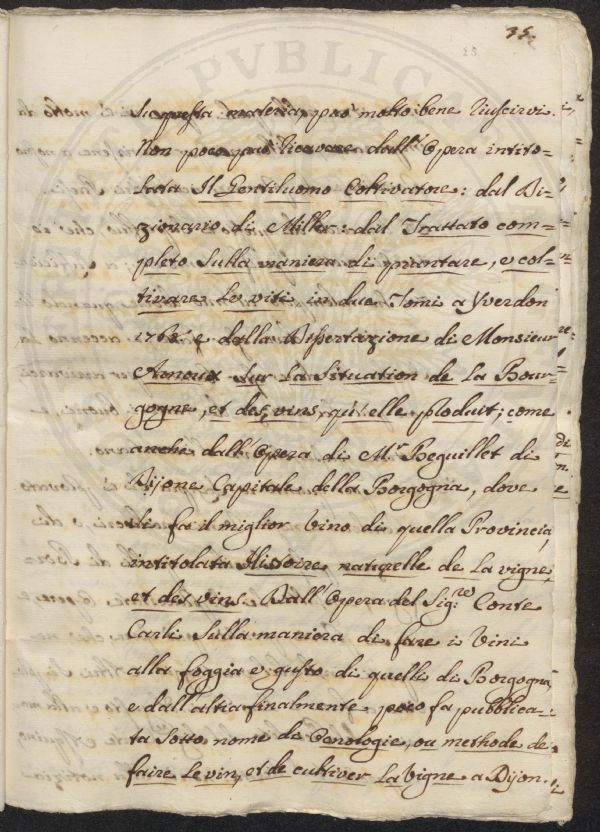 35.
23
PVBLICA
Su questa materia può molto bene riuscirvi.
Non poco può ricavare dall'Opera intito-
lata Il Gentiluomo Coltivatore: dal Di-
zionario di Miller: dal Trattato com-
pleto sulla maniera di piantare, e col-
tivare le viti in due Tomi a Yverdon
e dalla Dissertazione di Monsieur
Arnoux sur la Situation de la Bour-
gogne, et des vins, qu'elle produit; come
anche dall'Opera di M.r Beguillet di
Dijone Capitale della Borgogna, dove
si fa il miglior vino di quella Provincia,
intitolata Histoire naturelle de la vigne,
et des vins. Dall'Opera del Sig.re Conte
Carli sulla maniera di fare i vini
alla foggia e gusto di quelli di Borgogna,
e dall'altra finalmente poco fa pubblica-
ta sotto nome de Oenologie, ou methode de
faire le vin, et de cultiver la vigne a Dijon.